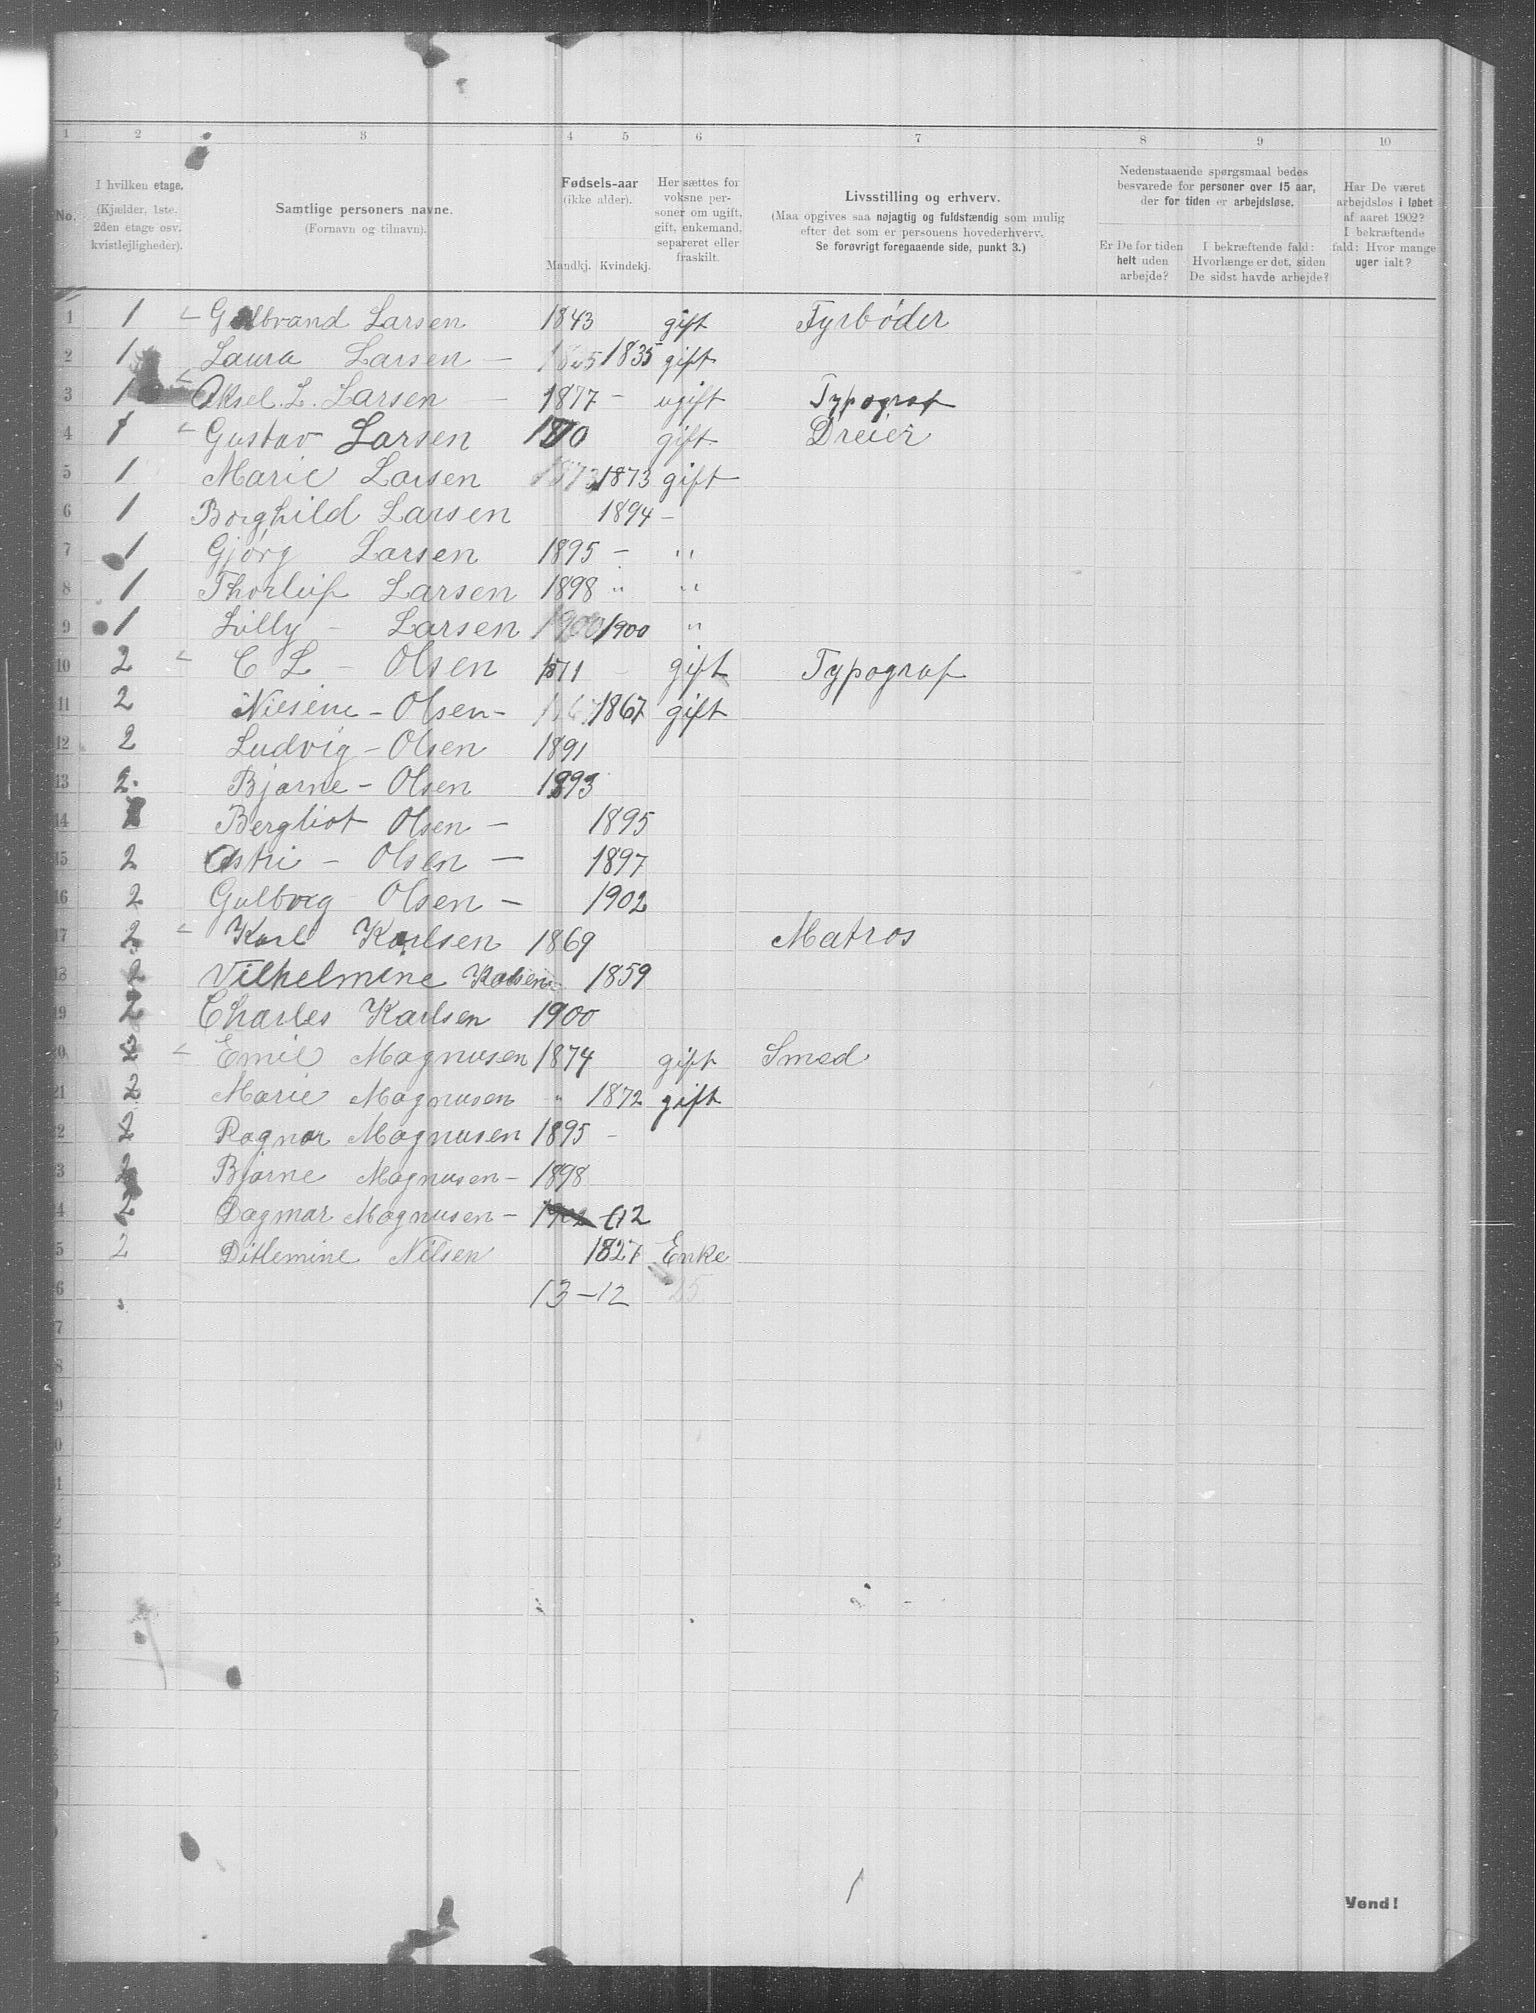 1 2 3 4 5 6 7 8 9 10
No.
I hvilken etage.
(Kjælder, 1ste.
2den etage osv.
kvistlejligheder).
Samtlige personers navne.
(Fornavn og tilnavn).
Fødsels-aar
(ikke alder).
Mandkj. Kvindekj.
Her sættes for
voksne per-
soner om ugift,
gift, enkemand,
separeret eller
fraskilt.
Livsstilling og erhverv.
(Maa opgives saa nøjagtig og fuldstændig som mulig
efter det som er personens hovederhverv.
Se forøvrigt foregaaende side, punkt 3.)
Nedenstaaende spørgsmaal bedes
besvarede for personer over 15 aar,
der for tiden er arbejdsløse.
Er De for tiden
helt uden
arbejde?
I bekræftende fald:
Hvorlænge er det, siden
De sidst havde arbejde?
Har De været
arbejdsløs i løbet
af aaret 1902?
I bekræftende
fald: Hvor mange
uger ialt?
1 1 Gulbrand Larsen 1843 gift Fyrbøder
2 1 Laura Larsen - 1835 gift
3 1 Aksel. L. Larsen - 1877 - ugift Typograf
4 1 Gustav Larsen 1870 gift Dreier
5 1 Marie Larsen 1873 1873 gift
6 1 Borghild Larsen 1894 -
7 1 Gjørg Larsen 1895 - "
8 1 Thorleif Larsen 1898 " "
9 1 Lilly - Larsen 1900 1900 "
10 2 C L - Olsen 1871 - gift Typograf
11 2 Niesine - Olsen - 1867 1867 gift
12 2 Ludvig - Olsen 1891
13 2. Bjarne - Olsen 1893
14 Bergliot Olsen - 1895
15 2 Astri - Olsen - 1897
16 2 Gulborg Olsen - 1902
17 2 Karl Karlsen 1869 Matros
18 2 Vilhelmine Karlsen - 1859
19 2 Charles Karlsen 1900
20 2 Emil Magnusen 1874 gift Smed
21 2 Marie Magnusen " 1872 gift
22 2 Ragnar Magnusen 1895 -
23 2 Bjarne Magnusen - 1898
24 2 Dagmar Magnusen - 1902 - 12
25 2 Ditlemine Nilsen 1827 Enke
26 13 - 12 25
Vend!